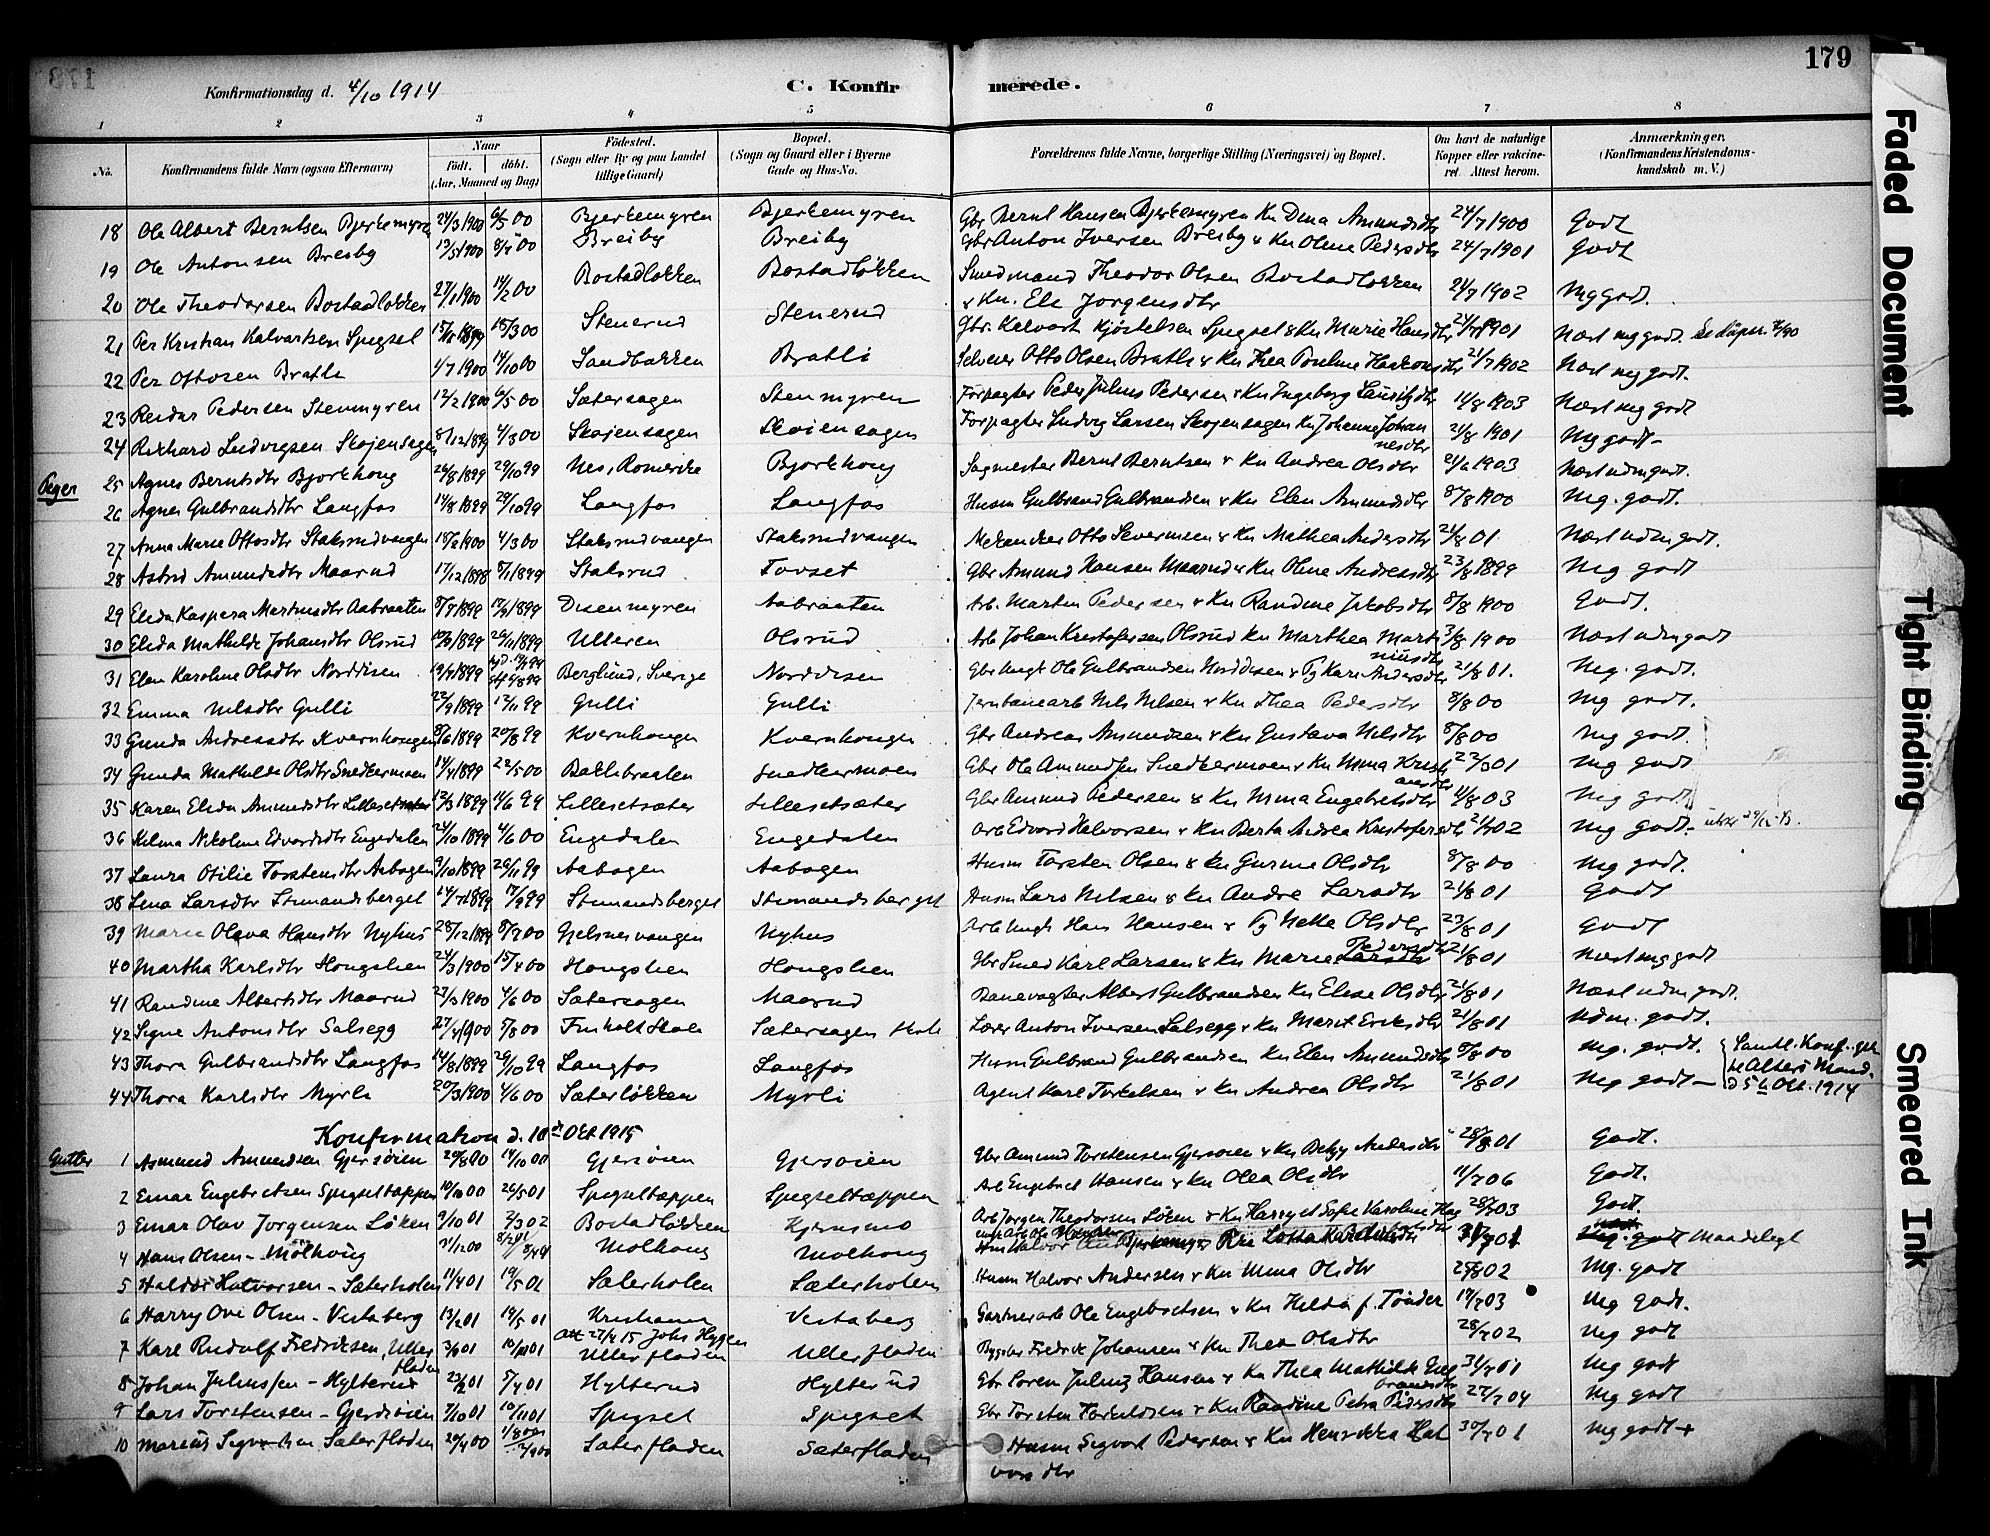 179
Konfirmationsdag d. 4/10 1914
C. Konfirmerede.
1 2 3 4 5 6 7 8
No. Konfirmandens fulde Navn (ogsaa Efternavn) Naar Født. døbt. (Aar, Maaned og Dag) Fødested. (Sogn eller By og paa Landet tillige Gaard) Bopæl. (Sogn og Gaard eller i Byerne Gade og Hus-No. Forældrenes fulde Navne, borgerlige Stilling (Næringsvei) og Bopæl. Om havt de naturlige Kopper eller vakcineret. Attest herom. Anmærkninger. (Konfirmandens Kristendomskundskab m. V.)
18 Ole Albert Berntsen Bjerkemyren 24/3 1900 6/5 00 Bjerkemyren Bjerkemyren Gbr Bernt Hansen Bjerkemyren Ku Dina Amundsdtr 24/7 1900 Godt
19 Ole Antonsen Breiby 8/7 00 Breiby Breiby Gbr Anton Iversen Breiby & Ku Oline Pedersdtr 24/7 1901 Godt
20 Ole Theodorsen Bostadløkken 27/1 1900 Bostadløkken Bostadløkken Smedmand Theodor Olsen Bostadløkken & Ku. Eli Jørgensdtr 21/7 1902 Mg godt.
21 Per Kristian Kalvartsen Spigset 18/3 00 Stenerud Stenerud Gbr. Kjøstelsen Spigset & Ku Marie Hansdtr 1901 Næst mg godt
22 Per Ottosen Bratli 1/7 1900 14/10 00 Sandbakken Bratli Selveier Otto Olsen Bratli & Ku Thea Pauline Haakonsdtr 21/7 1902 Næst mg godt.
23 Reidar Pedersen Stenmyren 12/2 1900 6/5 00 Sætersagen Stenmyren Forpagter Peder Julius Pedersen & Ku Ingeborg Lauritzdtr 11/8 1903 Næst mg godt
24 Rikhard Ludvigsen Skøiensagen 8/12 1899 4/3 00 Skøiensagen Skøiensagen Forpagter Ludvig Larsen Skøiensagen Ku Johanne Johannesdtr 21/8 1901 Mg godt
Piger 25 Agnes Berntsdtr Bjørkhong 26/8 1899 29/10 99 Nes, Romerike Bjørkhong Sagmester Bernt Berntsen & Ku Andrea Olsdtr 21/6 1903 Næst udm godt.
26 Agnes Gulbrandsdtr Langfos 14/8 1899 29/10 99 Langfos Langfos Husm Gulbrand Gulbrandsen & Ku Elen Amundsdtr 8/8 1900 Mg. godt.
27 Anna Marie Ottosdtr Staksrudvangen 18/2 1900 4/3 00 Staksrudvangen Staksrudvangen Otto Severinsen & Ku Mathea Andersdtr 21/8 01 Næst udm godt.
28 Astrid Amundsdtr Maarud 17/12 1898 8/1 1899 Staksrud Tovset Gbr Amund Hansen Maarud & Ku Oline Andreasdtr 23/8 1899 Mg godt
29 Elida Kaspera Martinsdtr Aabraaten 8/7 1899 17/9 1899 Disenmyren Aabraaten Arb. Martin Pedersen & Ku Randine Jakobsdtr 8/8 1900 Godt.
30 Elida Mathilde Johansdtr Olsrud 26/11 1899 Ulteren Olsrud Arb Johan Kristofersen Olsrud Ku Marthea Martiniusdtr 3/8 1900 Næst udm godt
31 Elen Karoline Olsdtr Norddisen 19/4 1899 Berglund, Sverige Norddisen Gbr Ungk Ole Gulbrandsen Norddisen & Pg Kari Andersdtr 21/8 01. Mg. godt.
32 Emma Nilsdtr Gulli 22/9 1899 12/11 99 Gulli Gulli Jernbanearb Nils Nilsen & Ku Thea Pedersdtr 8/8 00 Mg godt.
33 Gunda Andreasdtr Kvernhougen 8/6 1899 20/8 99 Kvernhougen Kvernhougen Gbr Andreas Amundsen & Ku Gustava Nilsdtr 8/8 00 Mg godt.
34 Gunda Mathilde Olsdtr Snedkermoen 14/4 1899 22/5 00 Bakkebraaten Snedkermoen Gbr Ole Amundsen Snedkermoen & Ku Mina Kristiansdtr 23/3 01 Mg godt
35 Karen Elida Amundsdtr Lillesetsæter 12/3 1899 4/6 99 Lillesetsæter Lillesetsæter Gbr Amund Pedersen & Ku Mina Engebretsdtr 11/8 03 Mg godt
36 Helma Nikoline Edvardsdtr Engedalen 24/10 1899 4/6 00 Engedalen Engedalen Arb Edvard Halvorsen & Ku Berta Andrea Kristofersdtr 21/7 02 Mg godt.
37 Laura Otilie Torstensdtr Aabogen 9/10 1899 26/11 99 Aabogen Aabogen Husm Torsten Olsen & Ku Gurine Olsdtr 8/8 00 Mg godt.
38 Lina Larsdtr Stumandsberget 14/7 1899 17/9 99 Stumandsberget Stumandsberget Husm Lars Nilsen & Ku Andre Larsdtr 21/8 01 Godt
39 Marie Olava Hansdtr Nyhus 28/12 1899 8/7 00 Gjelsnesvangen Nyhus Arb Ungk Hans Hansen & Pg Netta Olsdtr 23/8 01 Godt
40 Martha Karlsdtr Hongslien 24/3 1900 15/4 00 Hongslien Hongslien Gbr Smed Karl Larsen & Ku Marie Larsdtr Pedersdtr 21/8 01 Næst mg godt
41 Randine Albertsdtr Maarud 27/3 1900 4/6 00 Sætersagen Maarud Banevogter Albert Gulbrandsen Ku Elise Olsdtr 21/8 01 Næst udm godt.
42 Signe Antonsdtr Salsegg 27/4 1900 5/8 00 Finholt Skole Sætersagen Skole Lærer Anton Iversen Salsegg & Ku Marit Eriksdtr 21/8 01 Udm. godt.
43 Thora Gulbrandsdtr Langfos 14/8 1899 29/10 99 Langfos Langfos Husm Gulbrand Gulbrandsen Ku Elen Amundsdtr 8/8 00 Mg. godt.
44 Thora Karlsdtr Myrli 20/3 1900 4/6 00 Sæterløkken Myrli Agent Karl Torkelsen & Ku Andrea Olsdtr 21/8 01 Mg godt
Samtl. Konf. gik til Alters Mand. d 5te Okt. 1914
Konfirmation d. 10de Okt 1915
Gutter 1 Asmund Amundsen Gjersøien 20/8 00 14/10 00 Gjersøien Gjersøien Gbr Amund Torstensen Gjersøien & Ku Betzy Andersdtr 28/8 01 Godt.
2 Einar Engebretsen Spigseltæppen 10/10 00 26/5 01 Spigseltæppen Spigseltæppen Arb Engebret Hansen & Ku Olea Olsdtr 11/7 06 Godt.
3 Einar Olav Jørgensen Løken 9/10 01 2/3 02 Bostadløkken Kjernsmo Arb Jørgen Theodorsen Løken & Ku Harryet Sofie Karoline 28/7 03 Godt.
4 Hans Olsen - Mølhoug 31/12 00 Molhoug Molhoug Ku Lotta 31/7 01 Maadeligt
5 Haldor Halvorsen - Sæterholen 11/4 01 19/5 01 Sæterholen Sæterholen Husm Halvor Andersen & Ku Mina Olsdtr 25/8 02 Mg. godt
6 Harry Ovi Olsen - Vestaberg 13/2 01 19/5 01 Kristiania Vestaberg Gartnerarb Ole Engebretsen & Ku Hilda f. Tønder 17/7 03 Mg godt.
Att 27/4 15 Johs Hygen
7 Karl Rudolf Fredriksen, Ullerfladen 3/6 01 Ullerfladen Ullerfladen Fredrik Johansen & Ku Thea Olsdtr 28/7 02 Mg godt
8 Johan Juliussen - Hylterud 23/2 01 5/4 01 Hylterud Hylterud Gbr Soren Julius Hansen & Ku Thea Mathilde 31/7 01 Mg godt
9 Lars Torstensen - Gjerdsøien 7/10 01 10/11 01 Spigset Spigset Gbr Torsten & Ku Randine Petra Pedersdtr 27/7 04 Mg godt
10 Marius Sigvartsen Sæterfladen 20/4 00 Sæterfladen Sæterfladen Husm Sigvart Pedersen & Ku Henrikka Halvorsdtr 30/7 01 Mg godt +
Faded Document
Tight Binding
Smeared Ink